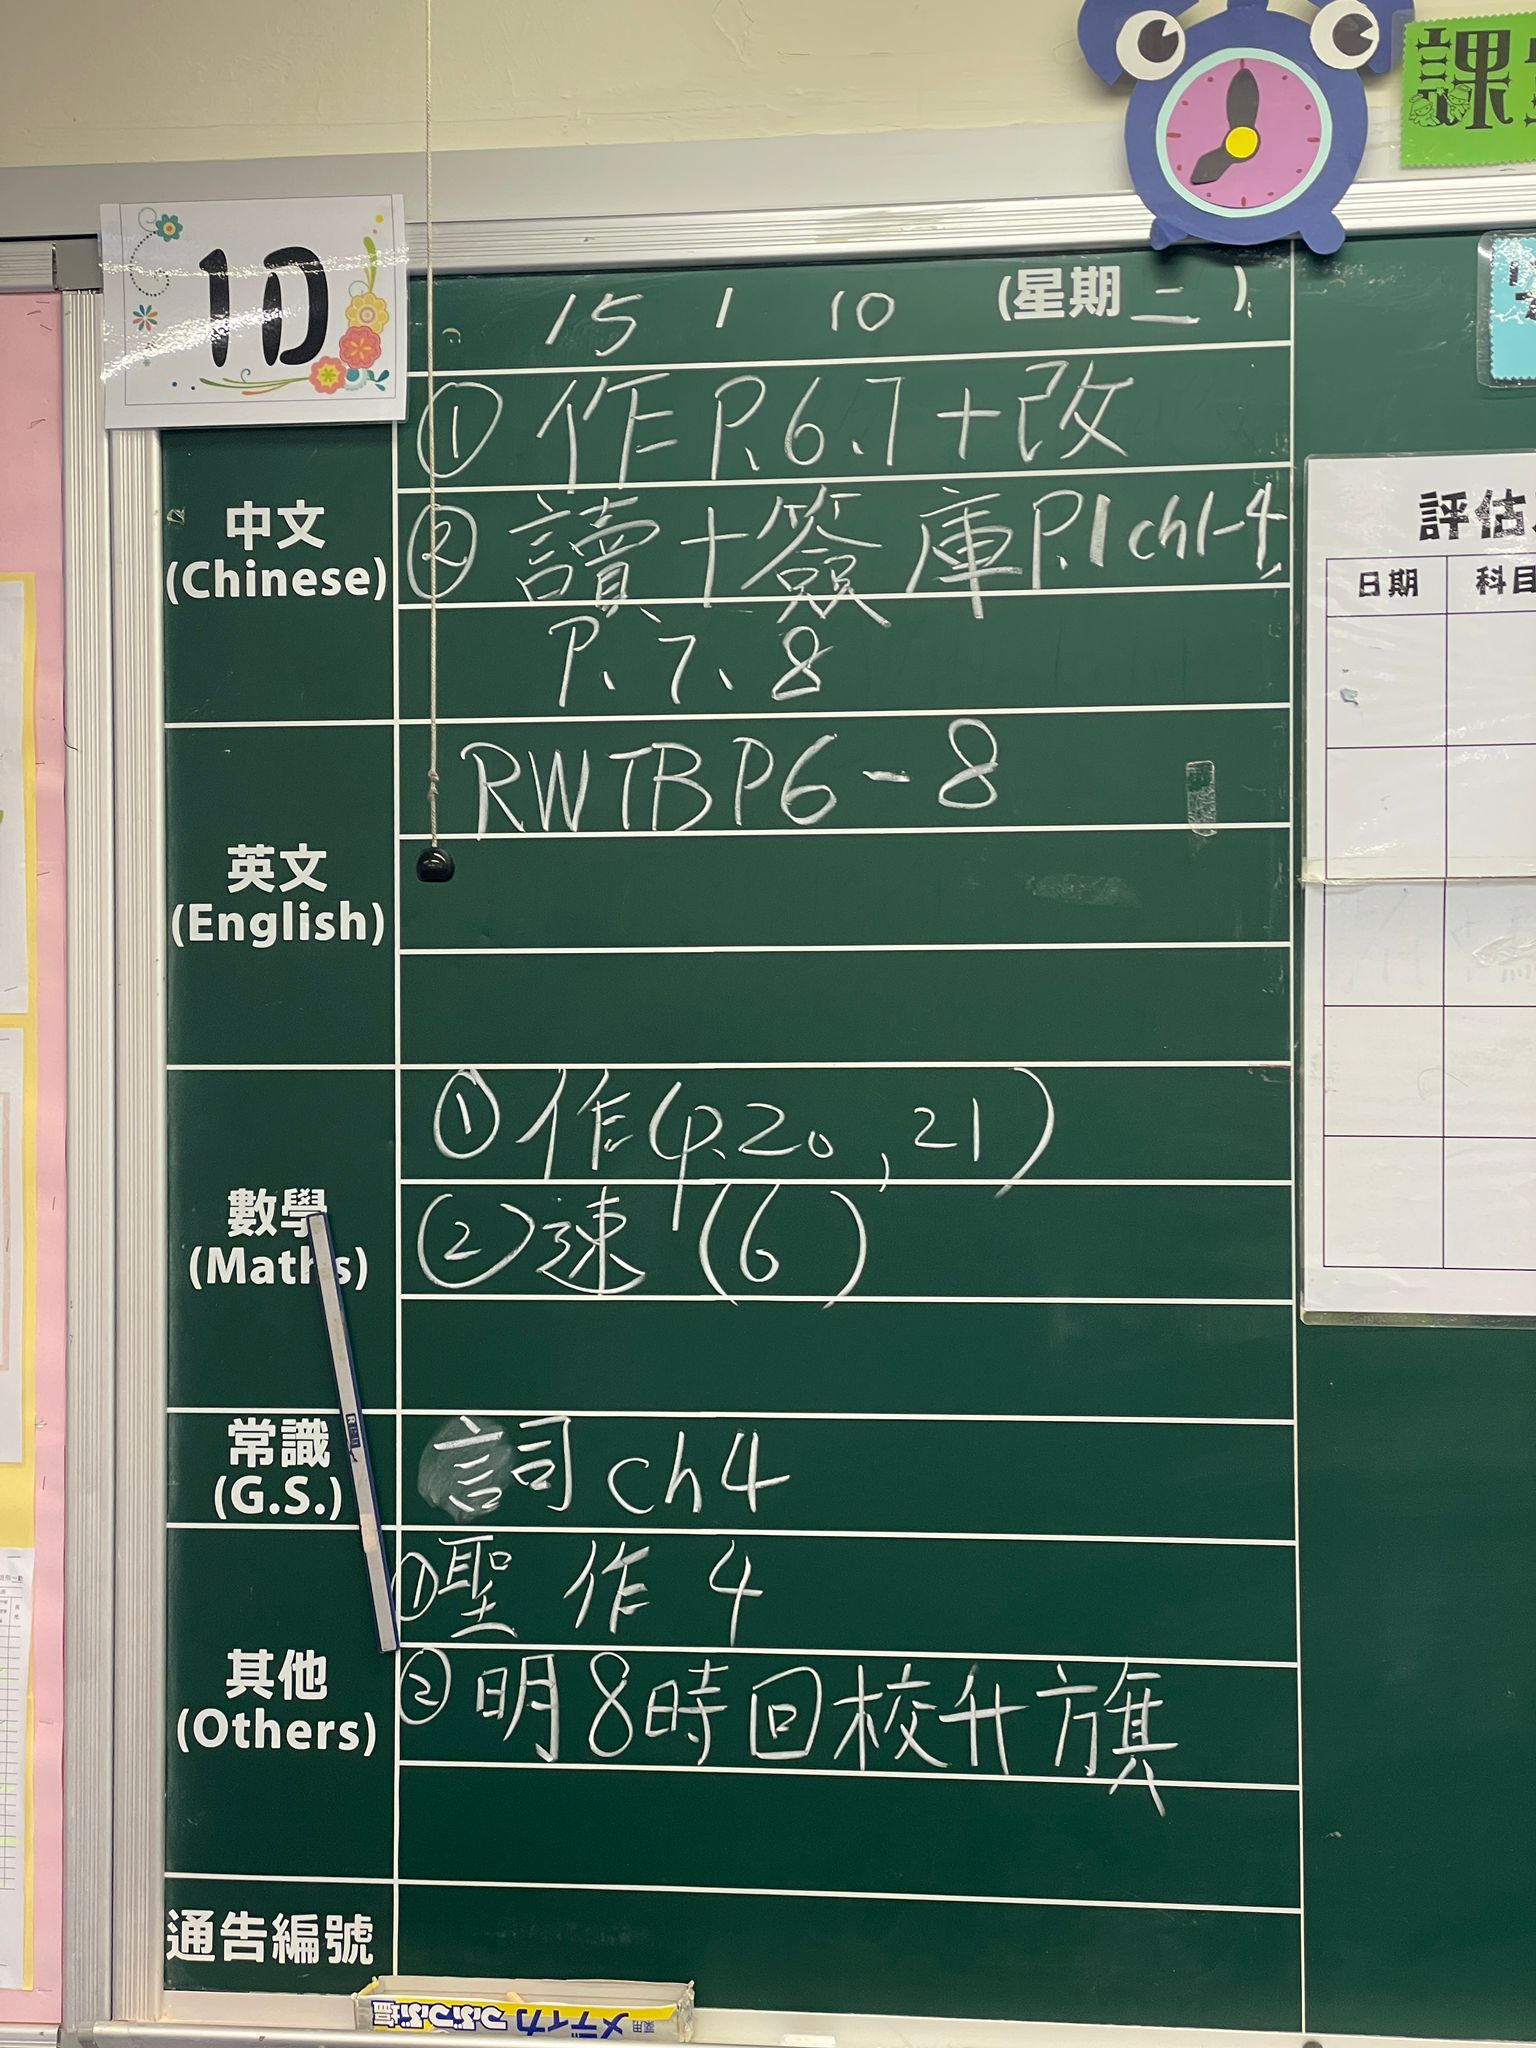 1D
課
15 1 10 (星期二)
中文
(Chinese)
① 作 P.6、7+改
② 讀+簽 庫P.1 ch1-4
P.7、8
英文
(English)
RWTB P6-8
數學
(Maths)
① 作(p.20, 21)
② 速(6)
常識
(G.S.)
詞 ch4
其他
(Others)
① 聖 作 4
② 明8時回校升旗
通告編號
評估
日期 科目
メディカ つぶつぶ塩